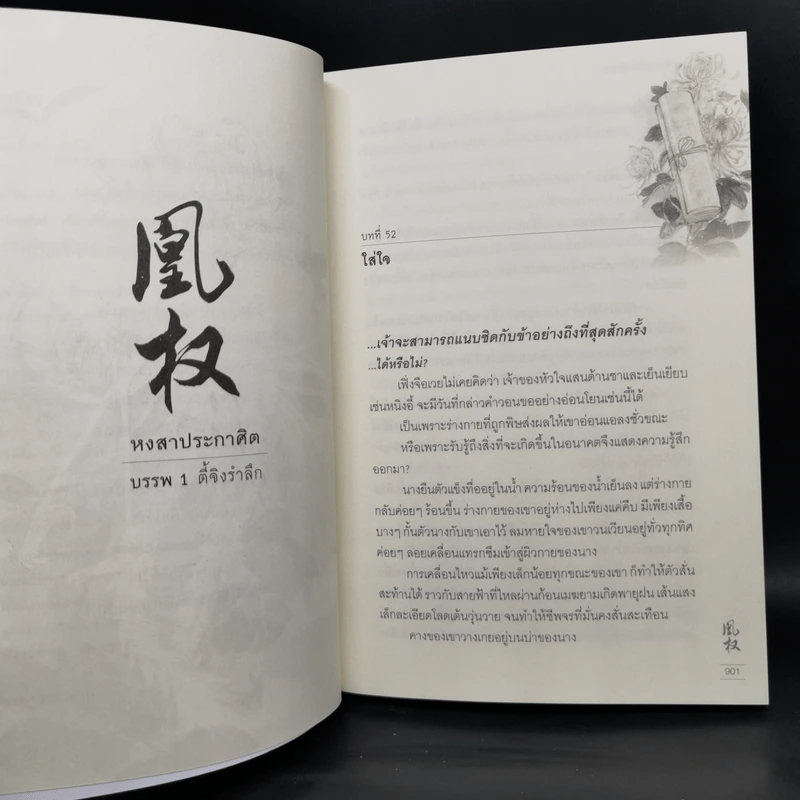 凰
权
หงสาประกาศิต
บรรพ 1 ตี้จิงรำลึก
บทที่ 52
ใส่ใจ
...เจ้าจะสามารถแนบชิดกับข้าอย่างถึงที่สุดสักครั้ง
...ได้หรือไม่?
เฟิ่งจือเวยไม่เคยคิดว่า เจ้าของหัวใจแสนด้านชาและเย็นเยียบ
เช่นหนิงอี้ จะมีวันที่กล่าวคำวอนขออย่างอ่อนโยนเช่นนี้ได้
เป็นเพราะร่างกายที่ถูกพิษส่งผลให้เขาอ่อนแอลงชั่วขณะ
หรือเพราะรับรู้ถึงสิ่งที่จะเกิดขึ้นในอนาคตจึงแสดงความรู้สึก
ออกมา?
นางยืนตัวแข็งทื่ออยู่ในน้ำ ความร้อนของน้ำเย็นลง แต่ร่างกาย
กลับค่อยๆ ร้อนขึ้น ร่างกายของเขาอยู่ห่างไปเพียงแค่คืบ มีเพียงเสื้อ
บางๆ กั้นตัวนางกับเขาเอาไว้ ลมหายใจของเขาวนเวียนอยู่ทั่วทุกทิศ
ค่อยๆ ลอยเคลื่อนแทรกซึมเข้าสู่ผิวกายของนาง
การเคลื่อนไหวแม้เพียงเล็กน้อยทุกขณะของเขา ก็ทำให้ตัวสั่น
สะท้านได้ ราวกับสายฟ้าที่ไหลผ่านก้อนเมฆยามเกิดพายุฝน เส้นแสง
เล็กละเอียดโลดเต้นวุ่นวาย จนทำให้ชีพจรที่มั่นคงสั่นสะเทือน
คางของเขาวางเกยอยู่บนบ่าของนาง
凰
权
901